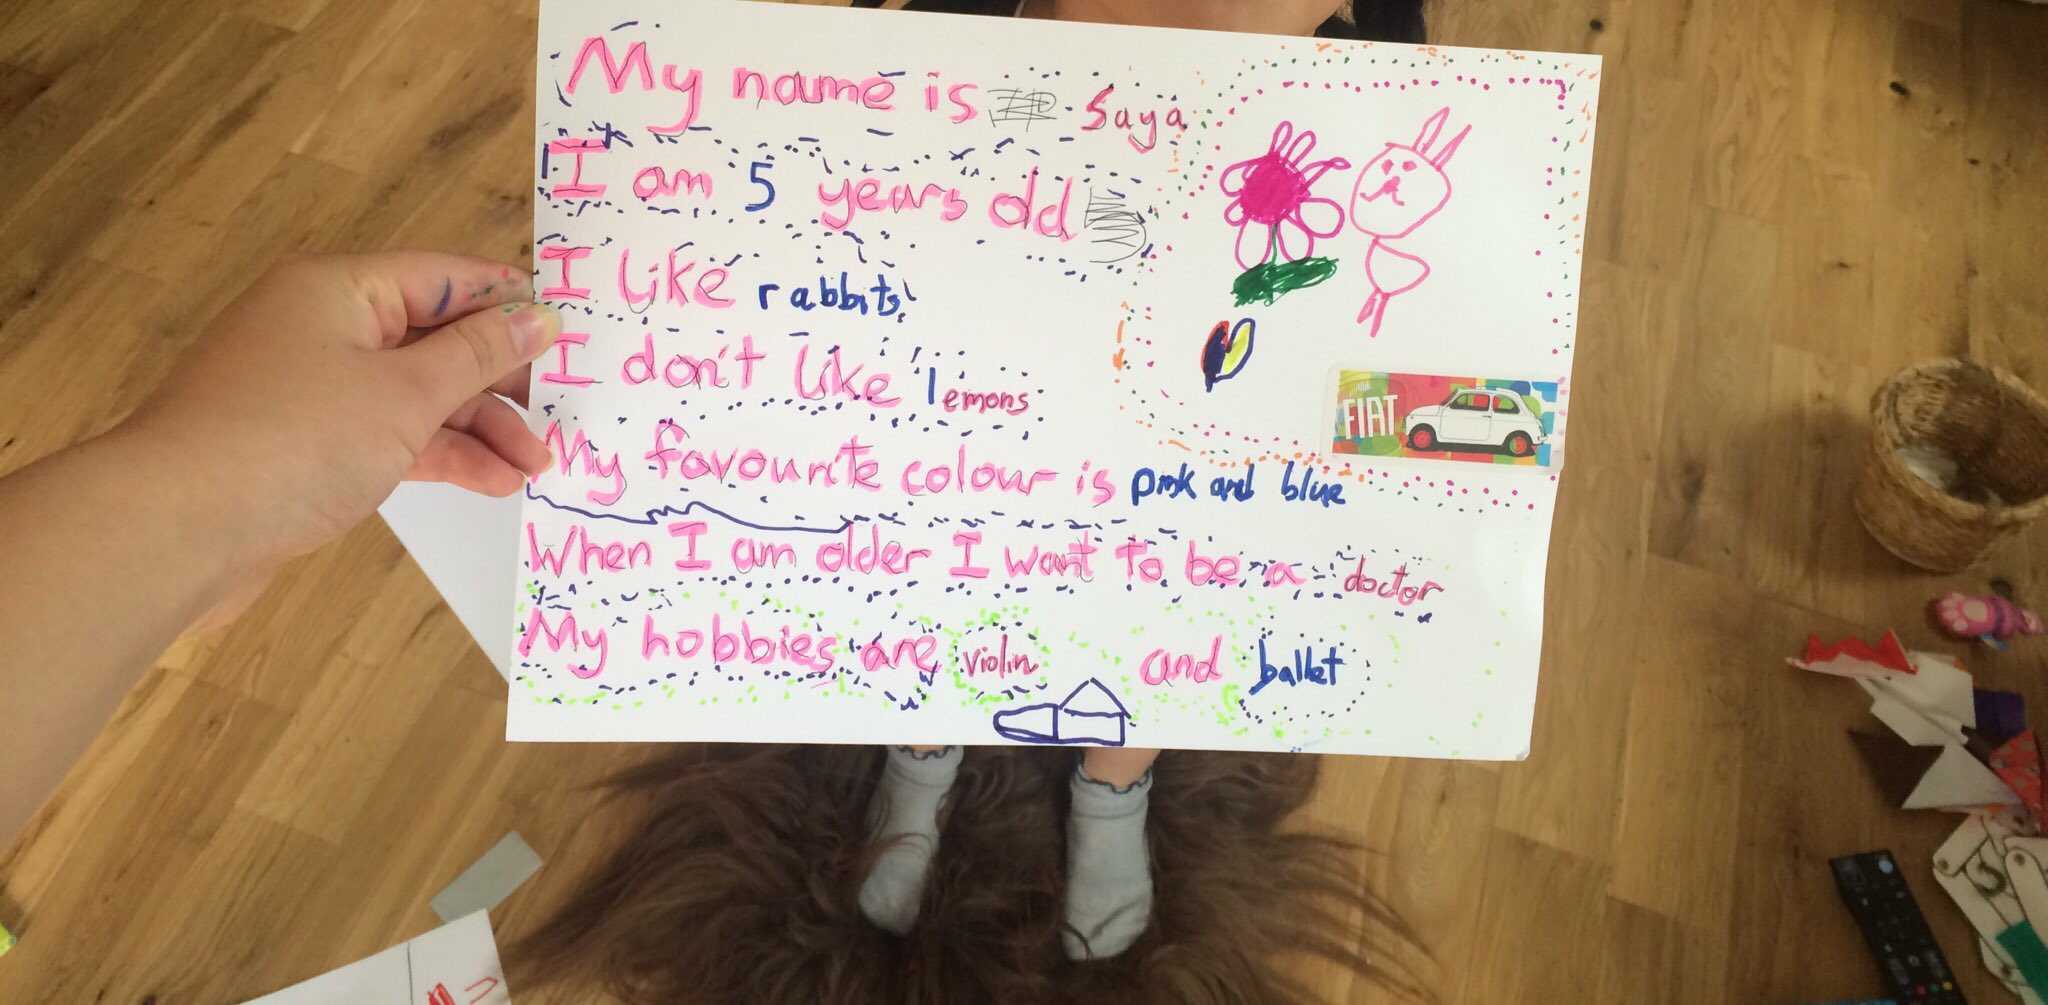 My name is Saya
I am 5 years old
I like rabbits
I don't like lemons
FIAT
My favourite colour is pink and blue
When I am older I want to be a doctor
My hobbies are violin and ballet